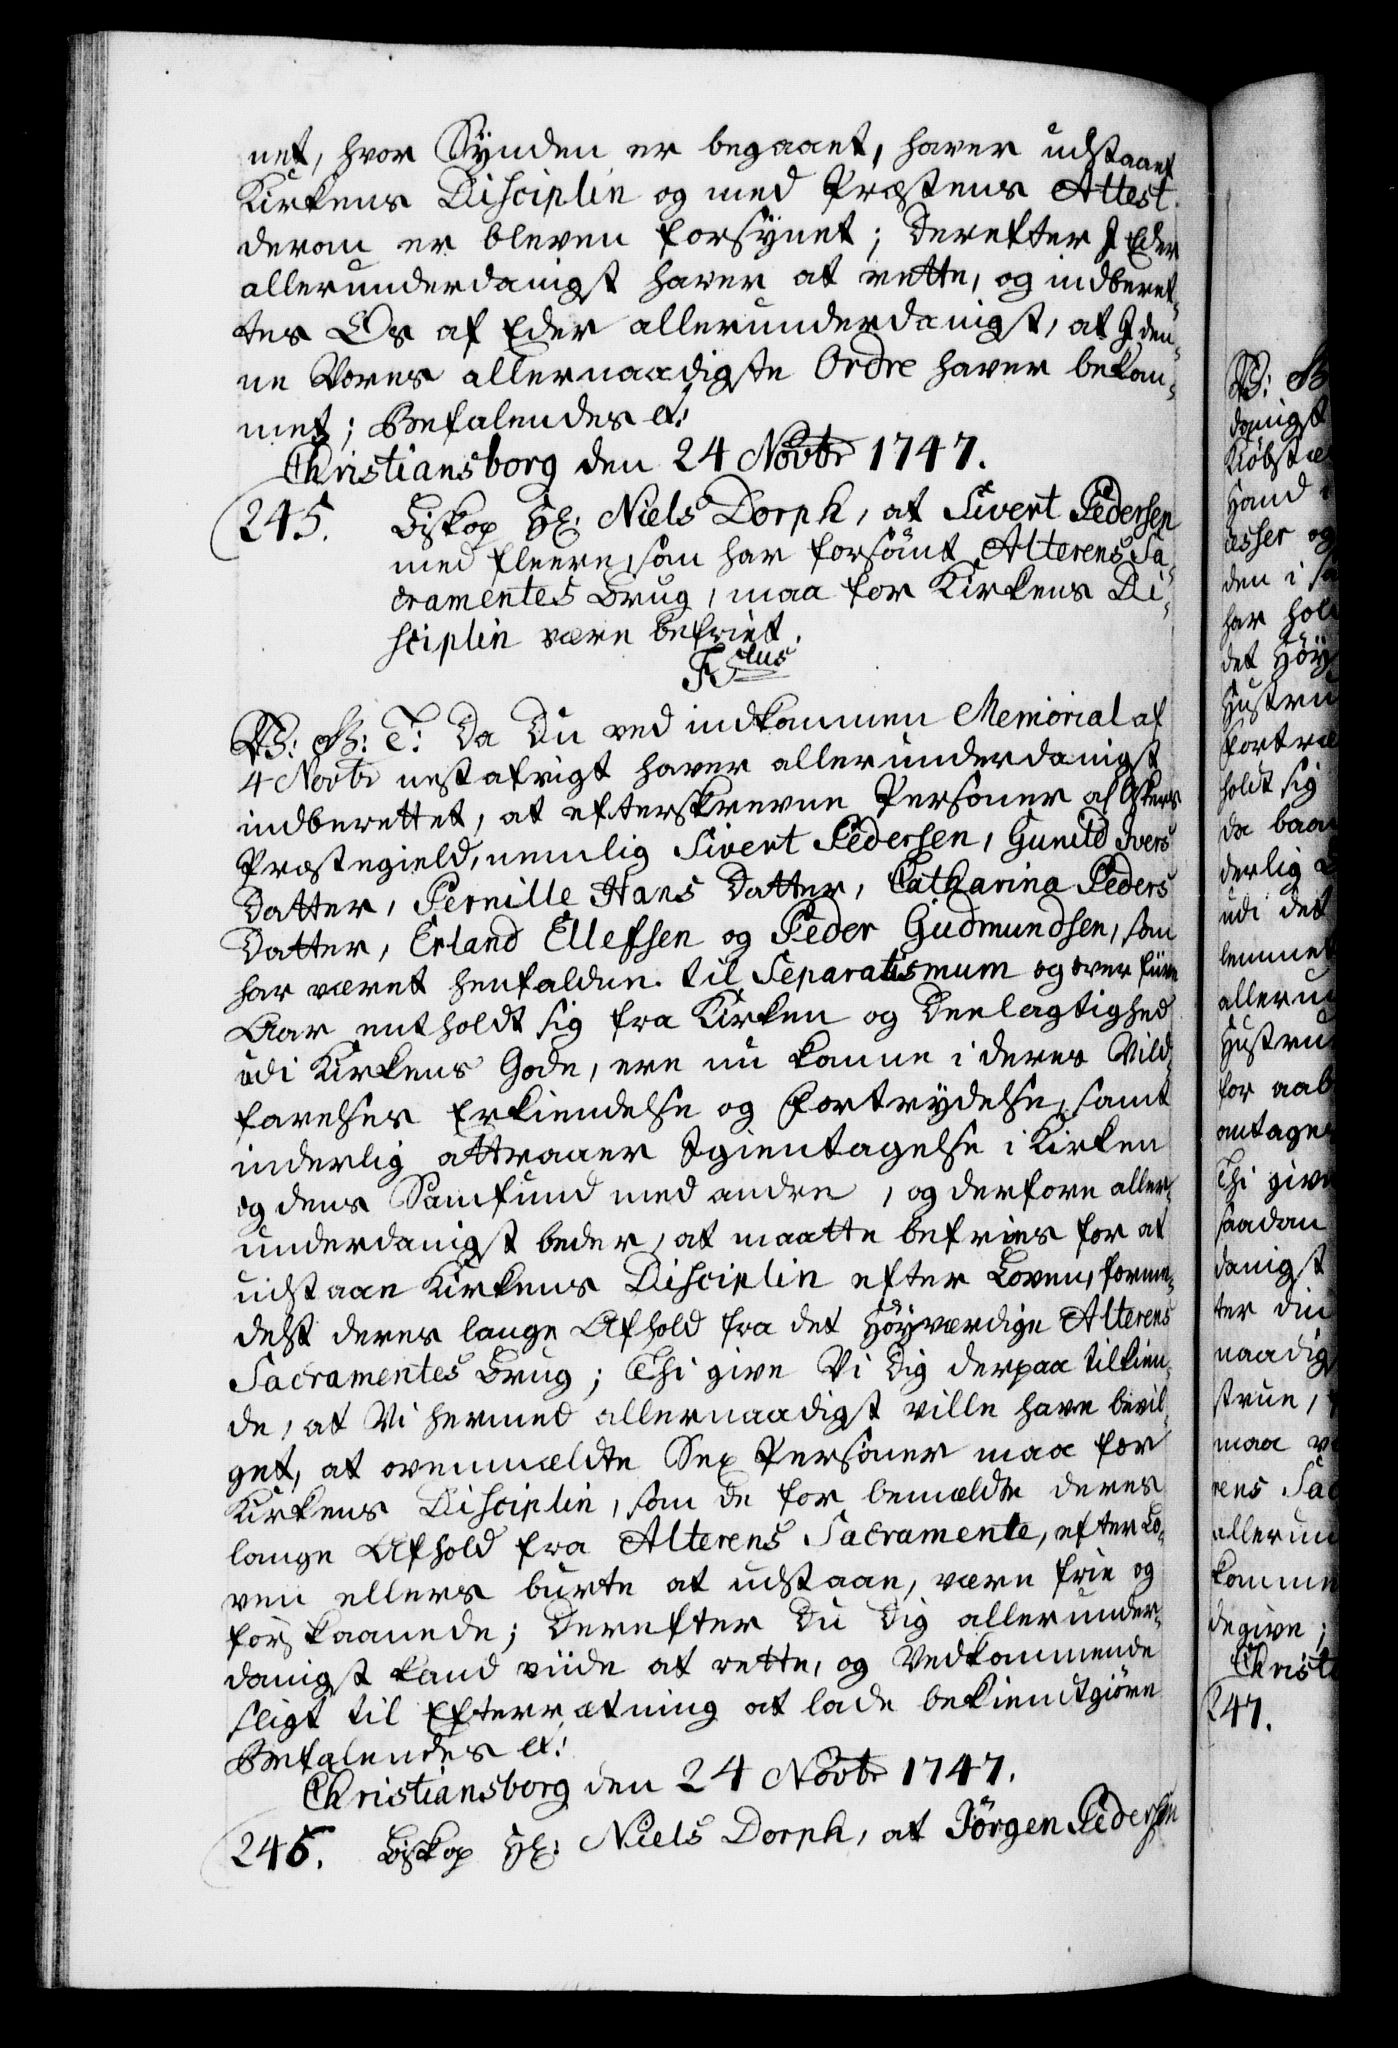 net, hvor Synden er begaaet, haver udstaaet
Kirkens Disciplin og med Præstens Attest
derom er bleven forsynet; Derefter I Eder
allerunderdanigst haver at rette, og indberet-
tes Os af Eder allerunderdanigst, at I den-
ne Vores allernaadigste Ordre haver bekom-
met; Befalendes etc:
Christiansborg den 24 Novbr 1747.
245. Biskop Hr: Niels Dorph, at Sivert Pedersen
med fleere, som har forsømt Alterens Sa-
cramentes Brug, maa for Kirkens Di-
sciplin være befriet.
F. 5tus
V: G: T: Da Du ved indkommen Memorial af
4 Novbr nestafvigt haver allerunderdanigst
indberettet, at efterskrevne Personer af Askers
Præstegield, nemlig Sivert Pedersen, Gunild Ivers
Datter, Pernille Hans Datter, Catharina Peders
Datter, Erland Ellefsen og Peder Gudmundsen, som
har været henfalden til Separatismum og over fiire
Aar entholdt sig fra Kirken og Deelagtighed
udi Kirkens Gode, ere nu komne i deres Vild-
farelses Erkiendelse og Fortrydelse, samt
inderlig attraaer Igientagelse i Kirken
og dens Samfund med andre, og derfore aller-
underdanigst beder, at maatte befries for at
udstaae Kirkens Disciplin efter Loven, forme-
delst deres lange Afhold fra det Höyværdige Alterens
Sacramentes Brug; Thi give Vi Dig derpaa tilkien-
de, at Vi hermed allernaadigst ville have bevil-
get, at ovenmældte Sex Personer maa for
Kirkens Disciplin, som de for bemældte deres
lange Afhold fra Alterens Sacramente, efter Lo-
ven ellers burte at udstaae, være frie og
forskaanede; Derefter Du Dig allerunder-
danigst kand viide at rette, og Vedkommende
sligt til Efterrætning at lade bekiendtgiöre
Befalendes etc:
Christiansborg den 24 Novbr 1747.
246. Biskop Hr: Niels Dorph, at Jörgen Pedersen
V: G
danigst
Kiöbstæ
Hand
esser og
den i
har hol
det Höy
Hustru
fortræ
holdt sig
da baa
derlig
udi det
lemmet
alleru
Hustru
for aab
antage
Thi give
saadan
danigst
ter din
naadig
strue,
maa v
rens Sac
allerun
komme
degive;
Christi
247.